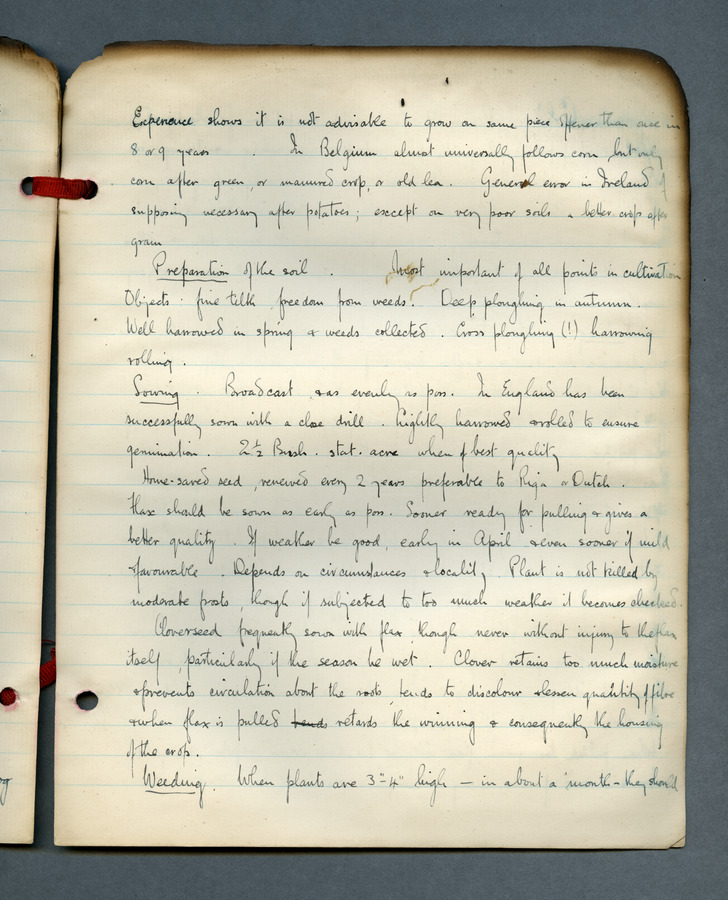 Experience shows it is not advisable to grow on same piece oftener than once in
8 or 9 years . In Belgium almost universally follows corn , but only
corn after green, or manured crop, or old lea . General error in Ireland of
supposing necessary after potatoes ; except on very poor soils a better crop after
grain
Preparation of the soil . Most important of all points in cultivation
Objects . fine tilth , freedom from weeds . Deep ploughing in autumn .
Well harrowed in spring & weeds collected . Cross ploughing (!) harrowing
rolling .
Sowing . Broadcast , & as evenly as poss. In England has been
successfully sown with a close drill . Lightly harrowed & rolled to ensure
germination . 2½ Bush . stat . acre when of best quality
Home-saved seed , renewed every 2 years preferable to Riga or Dutch .
Flax should be sown as early as poss. Sooner ready for pulling & gives a
better quality . If weather be good, early in April & even sooner if mild
& favourable . Depends on circumstances & locality . Plant is not killed by
moderate frosts , though if subjected to too much weather it becomes checked .
Cloverseed frequently sown with flax , though never without injury to the flax
itself , particularly if the season be wet . Clover retains too much moisture
& prevents circulation about the roots , tends to discolour & lessen quantity of fibre
& when flax is pulled tends retards the winning & consequently the housing
of the crop .
Weeding . When plants are 3"-4" high — in about a month – they should